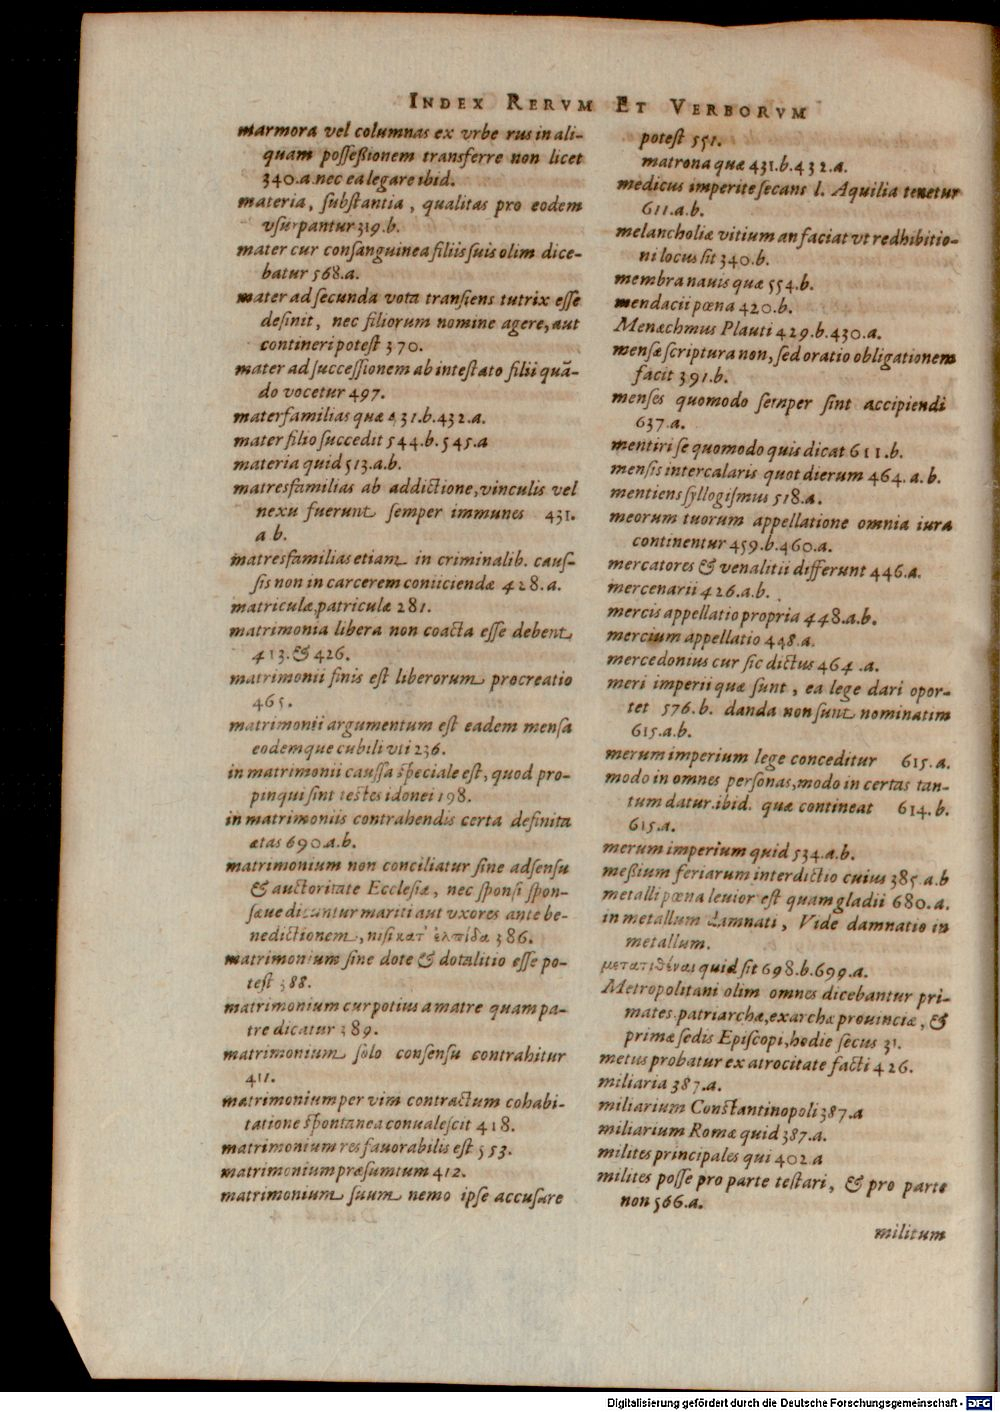 INDEX RERVM ET VERBORVM
marmora vel columnas ex vrbe rus in ali-
quam poſſeßionem transferre non licet
340.a.nec ea legare ibid.
materia, ſubſtantia, qualitas pro eodem
vſurpantur 319.b.
mater cur conſanguinea filiis ſuis olim dice-
batur 568.a.
mater ad ſecunda vota tranſiens tutrix eſſe
deſinit, nec filiorum nomine agere, aut
contineri poteſt 370.
mater ad ſucceſſionem ab inteſtato filii quã-
do vocetur 497.
materfamilias quæ 431.b.432.a.
mater filio ſuccedit 544.b.545.a
materia quid 513.a.b.
matresfamilias ab addictione, vinculis vel
nexu fuerunt ſemper immunes 431.
a b.
matresfamilias etiam in criminalib. cauſ-
ſis non in carcerem coniiciendæ 428.a.
matriculæ, patriculæ 281.
matrimonia libera non coacta eſſe debent
413. & 426.
matrimonii finis eſt liberorum procreatio
465.
matrimonii argumentum eſt eadem menſa
eodemque cubili vti 236.
in matrimonii cauſſa ſpeciale eſt, quod pro-
pinqui ſint teſtes idonei 198.
in matrimoniis contrahendis certa definita
ætas 690.a.b.
matrimonium non conciliatur ſine adſenſu
& auctoritate Eccleſiæ, nec ſponſi ſpon-
ſæue dicuntur mariti aut vxores ante be-
nedictionem, niſi κατ' ἐλπίδα 386.
matrimonium ſine dote & dotalitio eſſe po-
teſt 388.
matrimonium cur potius a matre quam pa-
tre dicatur 389.
matrimonium ſolo conſenſu contrahitur
411.
matrimonium per vim contractum cohabi-
tatione ſpontanea conualeſcit 418.
matrimonium res fauorabilis eſt 553.
matrimonium præſumtum 412.
matrimonium ſuum nemo ipſe accuſare
poteſt 551.
matrona quæ 431.b.432.a.
medicus imperite ſecans l. Aquilia tenetur
611.a.b.
melancholiæ vitium an faciat vt redhibitio-
ni locus ſit 340.b.
membra nauis quæ 554.b.
mendacii pœna 420.b.
Menæchmus Plauti 429.b.430.a.
menſæ ſcriptura non, ſed oratio obligationem
facit 391.b.
menſes quomodo ſemper ſint accipiendi
637.a.
mentiri ſe quomodo quis dicat 611.b.
menſis intercalaris quot dierum 464.a.b.
mentiens ſyllogiſmus 518.a.
meorum tuorum appellatione omnia iura
continentur 459.b.460.a.
mercatores & venalitii differunt 446.a.
mercenarii 426.a.b.
mercis appellatio propria 448.a.b.
mercium appellatio 448.a.
mercedonius cur ſic dictus 464.a.
meri imperii quæ ſunt, ea lege dari opor-
tet 576.b. danda non ſunt nominatim
615.a.b.
merum imperium lege conceditur 615.a.
modo in omnes perſonas, modo in certas tan-
tum datur.ibid. quæ contineat 614.b.
615.a.
merum imperium quid 534.a.b.
meßium feriarum interdictio cuius 385.a.b
metalli pœna leuior eſt quam gladii 680.a.
in metallum damnati, Vide damnatio in
metallum.
μετατιθέναι quid ſit 698.b.699.a.
Metropolitani olim omnes dicebantur pri-
mates.patriarchæ, exarchæ prouinciæ, &
primæ ſedis Epiſcopi, hodie ſecus 31.
metus probatur ex atrocitate facti 426.
miliaria 387.a.
miliarium Conſtantinopoli 387.a
miliarium Romæ quid 387.a.
milites principales qui 402.a
milites poſſe pro parte teſtari, & pro parte
non 566.a.
militum
Digitalisierung gefördert durch die Deutsche Forschungsgemeinschaft - DFG